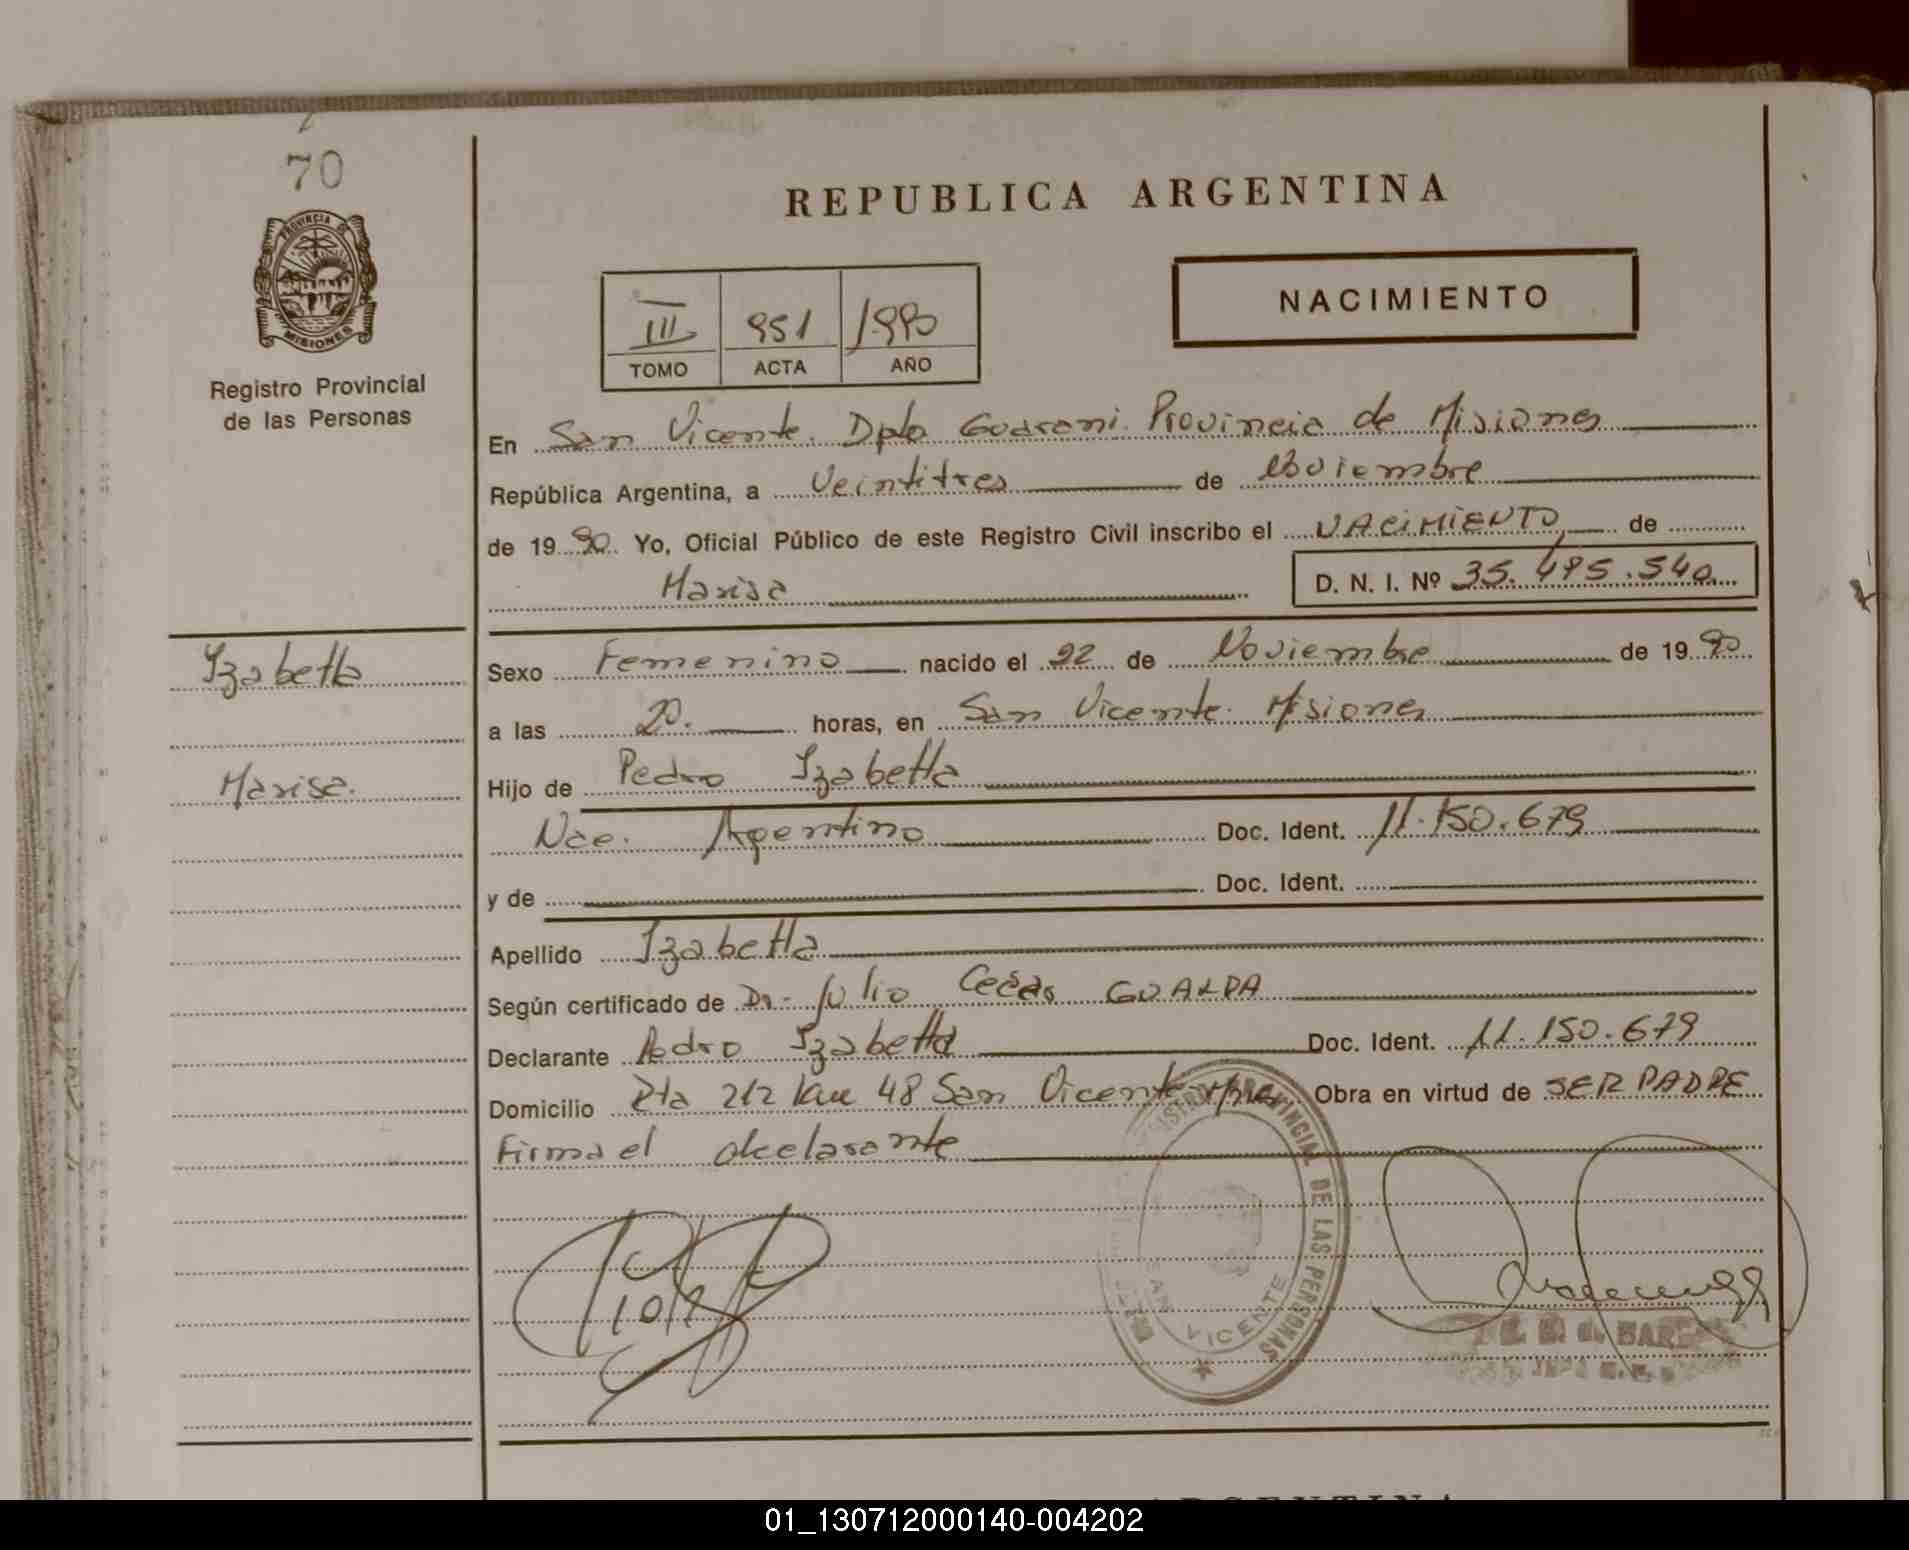 70
PROVINCIA DE
MISIONES
Registro Provincial
de las Personas
REPUBLICA ARGENTINA
III 951 1990
TOMO ACTA AÑO
NACIMIENTO
En San Vicente. Dpto Guarani. Provincia de Misiones
República Argentina, a Veintitres de Noviembre
de 1990 Yo, Oficial Público de este Registro Civil inscribo el NACIMIENTO de
Marisa D. N. I. Nº 35.495.540
Izabetta
Sexo Femenino nacido el 22 de Noviembre de 1990
a las 20. horas, en San Vicente. Misiones
Marisa.
Hijo de Pedro Izabetta
Nac. Agentino Doc. Ident. 11.150.679
y de Doc. Ident.
Apellido Izabetta
Según certificado de Dr. Julio Cesar GUALPA
Declarante Pedro Izabetta Doc. Ident. 11.150.679
Domicilio Rta 212 Km 48 San Vicente Mnes Obra en virtud de SER PADRE
Firma el declarante
REGISTRO PROVINCIAL DE LAS PERSONAS
SAN VICENTE
ARGENTINA
01_130712000140-004202